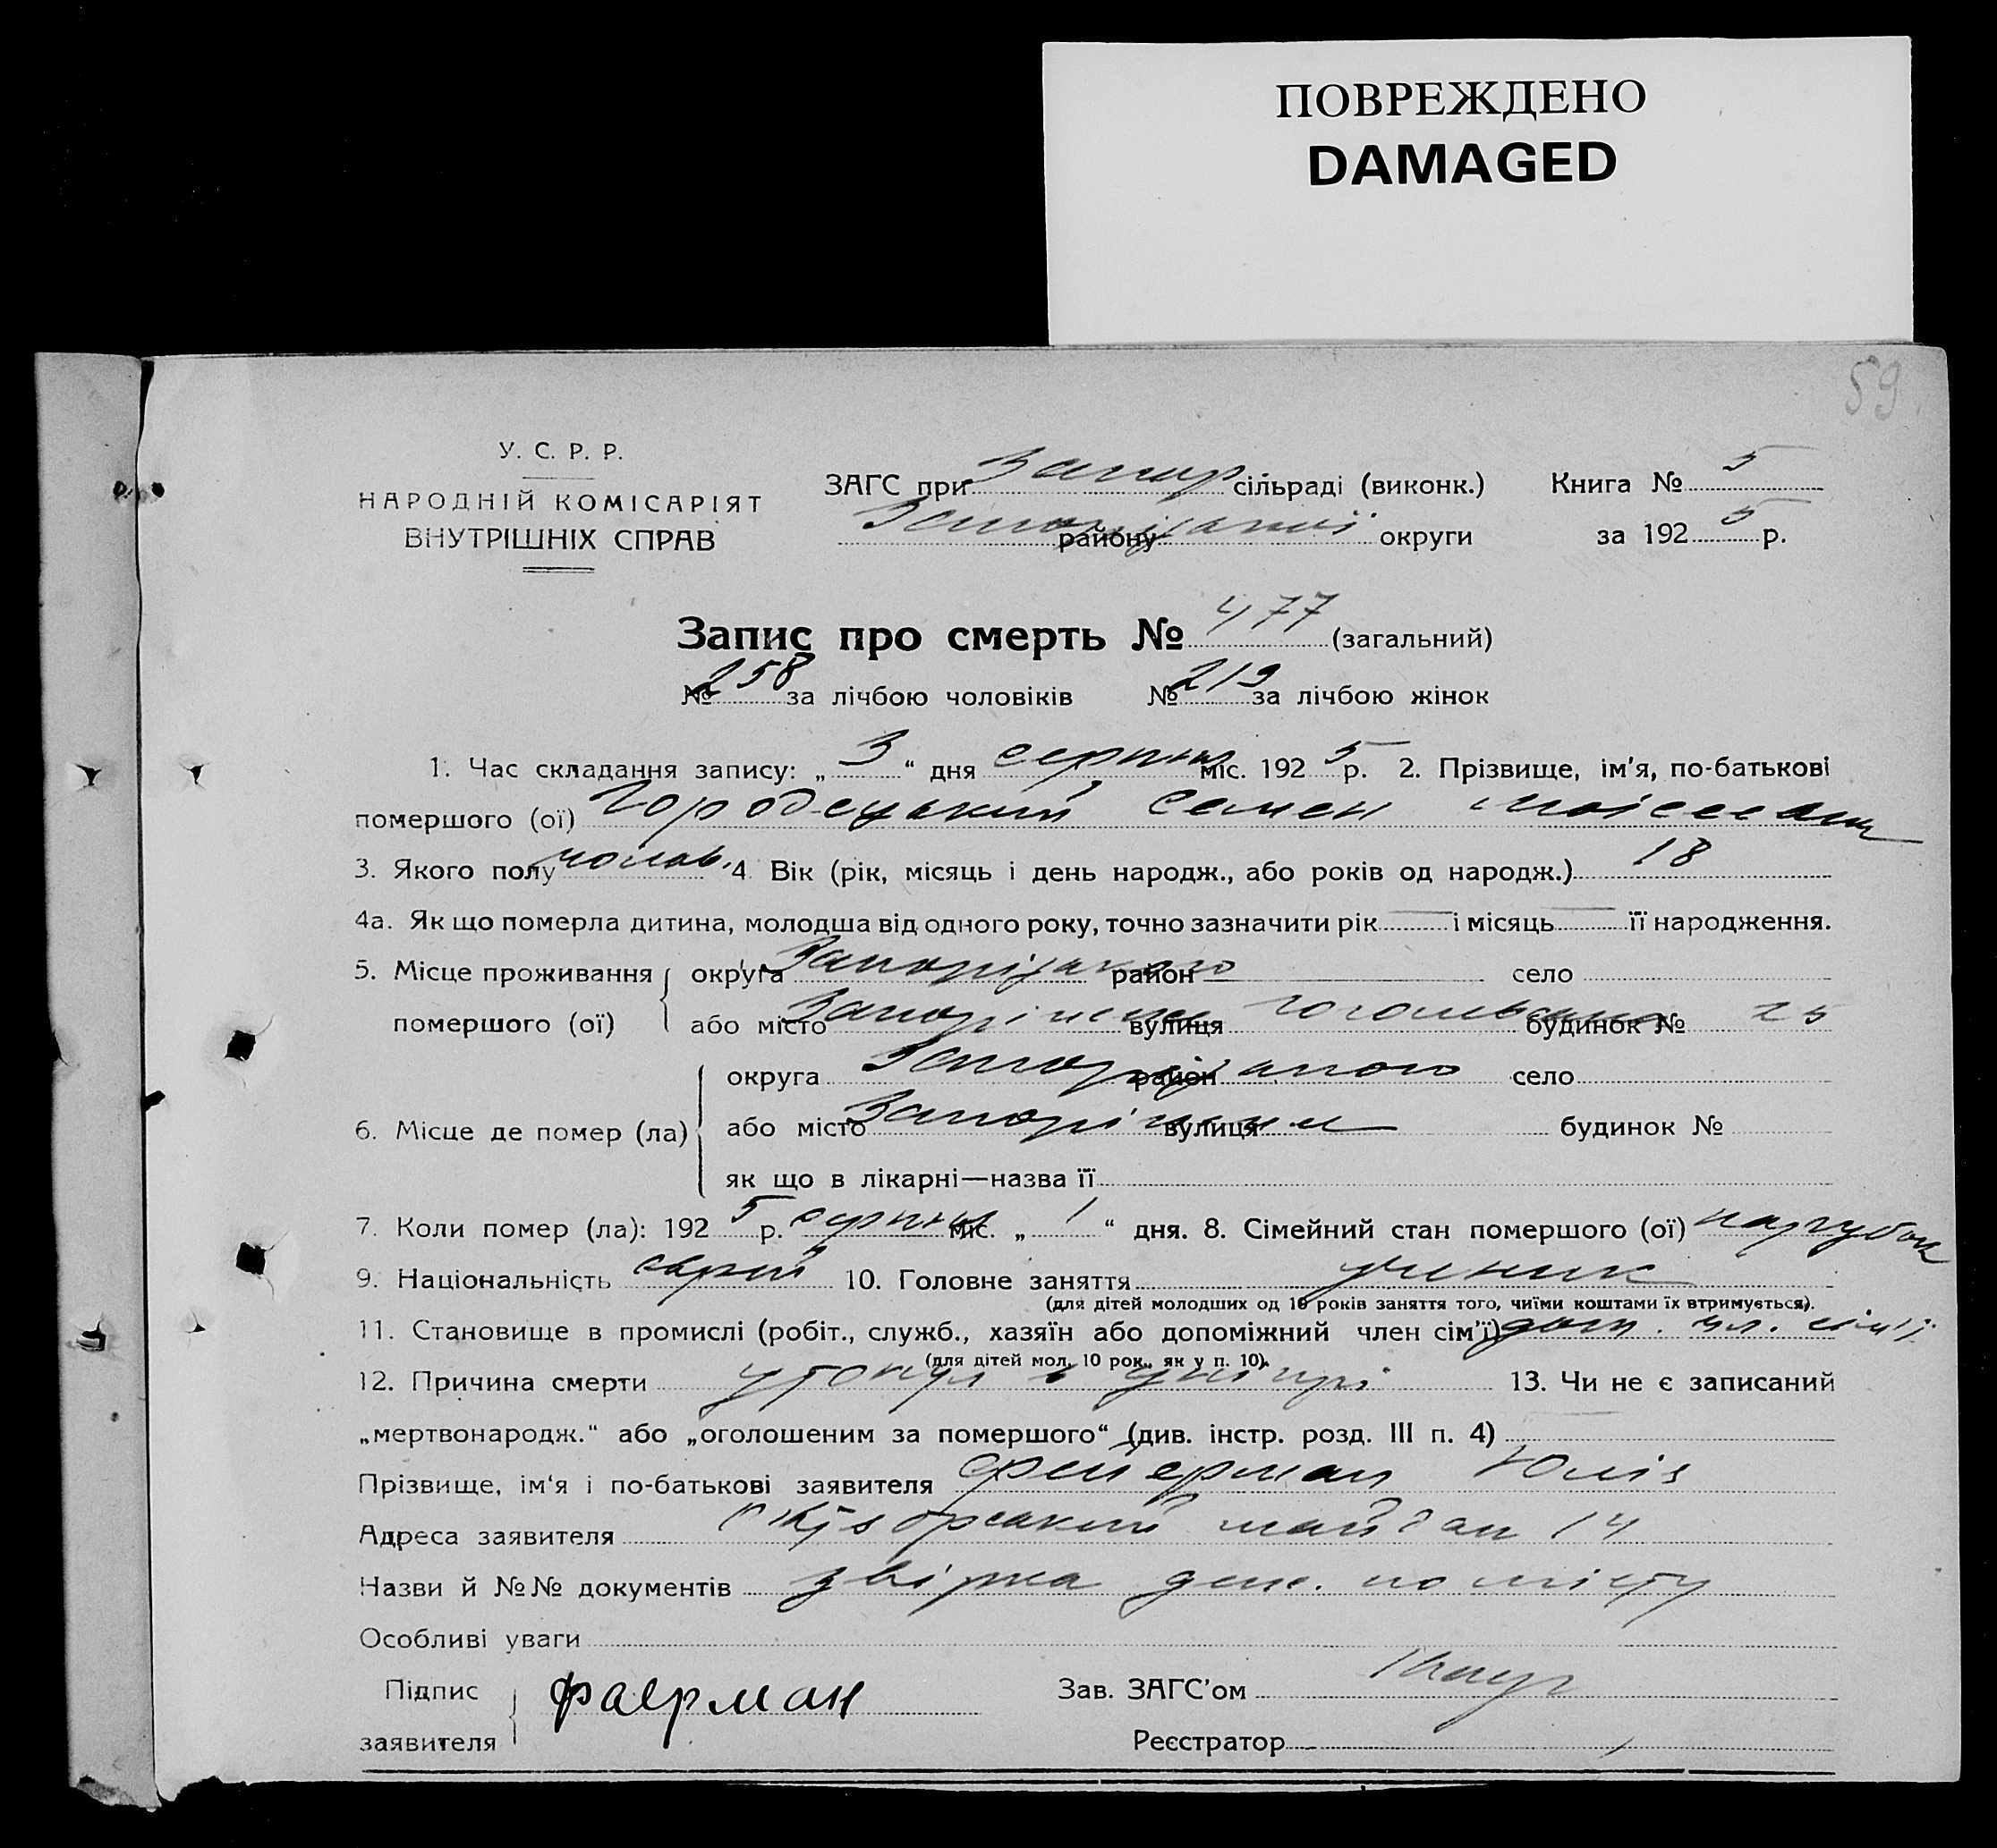 ПОВРЕЖДЕНО
DAMAGED
59
У. С. Р. Р.
НАРОДНІЙ КОМІСАРІЯТ
ВНУТРІШНІХ СПРАВ
ЗАГС при Запор сільраді (виконк.) Книга № 5
району Запорізької округи за 1925 р.
Запис про смерть № 477 (загальний)
№ 258 за лічбою чоловіків № 219 за лічбою жінок
1. Час складання запису: „3“ дня серпня міс. 1925 р. 2. Прізвище, ім'я, по-батькові
помершого (ої) Городецький Семен
3. Якого полу чолов. 4 Вік (рік, місяць і день народж., або років од народж.) 18
4а. Як що померла дитина, молодша від одного року, точно зазначити рік — і місяць — її народження.
5. Місце проживання округа Запорізького район село
помершого (ої) або місто Запоріжжя вулиця Гогольська будинок № 25
округа Запорізького район село
6. Місце де помер (ла) або місто Запоріжжя вулиця будинок №
як що в лікарні—назва її
7. Коли помер (ла): 1925 р. серпня міс. „1“ дня. 8. Сімейний стан помершого (ої) парубок
9. Національність єврей 10. Головне заняття ученик
(для дітей молодших од 10 років заняття того, чиїми коштами їх втримується).
11. Становище в промислі (робіт., служб., хазяїн або допоміжний член сім'ї) доп. чл. сім'ї
(для дітей мол. 10 рок., як у п. 10).
12. Причина смерти утонул в Дніпрі 13. Чи не є записаний
„мертвонародж.“ або „оголошеним за помершого“ (див. інстр. розд. III п. 4)
Прізвище, ім'я і по-батькові заявителя Фейерман Юлія
Адреса заявителя майдан 14
Назви й №№ документів
Особливі уваги
Підпис
заявителя Фаерман
Зав. ЗАГС'ом
Реєстратор